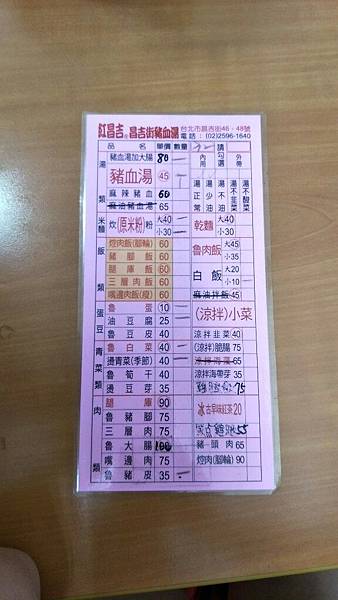 紅昌吉 昌吉街豬血湯 台北市昌吉街46、48號
電話：(02)2596-1640
品名 單價 數量 請勾選
內用 外帶
湯類
豬血湯加大腸 80
豬血湯 45
麻辣豬血 60
麻油豬血湯 65
湯正常 湯少油 湯不油 湯不韭菜 湯不酸菜
米麵
炊(原米粉)粉 大40 小30
乾麵 大40 小30
飯類
焢肉飯(腳輪) 60
豬腳飯 60
腿庫飯 60
三層肉飯 60
嘴邊肉飯(瘦) 60
魯肉飯 大45 小35
白飯 大20 小10
麻油拌飯 45
蛋豆青菜類
魯蛋 10
油豆腐 25
魯豆皮 40
魯白菜 40
燙青菜(季節) 40
魯筍干 40
燙豆芽 35
(涼拌)小菜
涼拌韭菜 40
(涼拌)脆腸 75
65
涼拌海帶芽 35
75
肉類
腿庫 90
魯豬腳 75
三層肉 75
魯大腸 100
嘴邊肉 75
魯豬皮 35
冰古早味紅茶 20
55
豬頭肉 65
焢肉(腳輪) 90